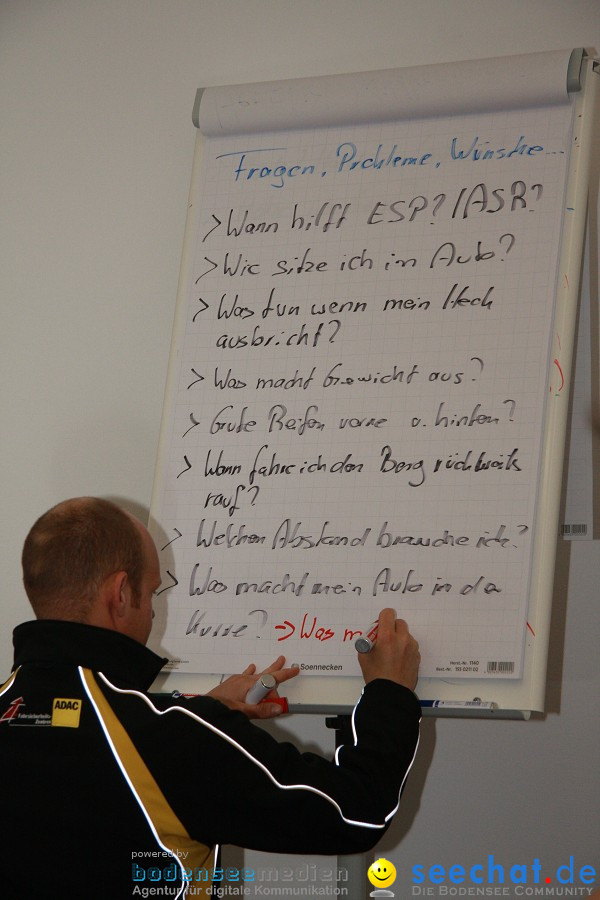 Fragen, Probleme, Wünsche...
> Wann hilft ESP? / ASR?
> Wie sitze ich im Auto?
> Was tun wenn mein Heck
ausbricht?
> Was macht Gewicht aus?
> Gute Reifen vorne o. hinten?
> Wann fahre ich den Berg rückwärts
rauf?
> Welchen Abstand brauche ich?
> Was macht mein Auto in der
Kurve? → Was m
Soennecken
ADAC
powered by
bodenseemedien
Agentur für digitale Kommunikation
seechat.de
Die Bodensee Community